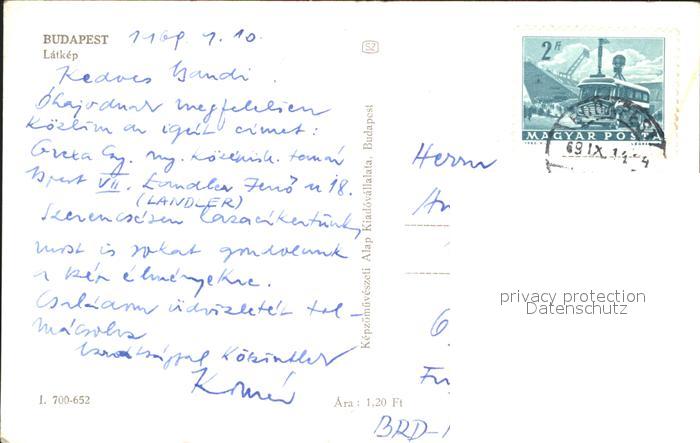 BUDAPEST
Látkép
SZ
Kedves Bandi.
Óhajodnak megfelelően
közlöm az igért címet:
ny. középisk. tanár
Bpest VII. Landler Jenő u 18.
(LANDLER)
Szerencsésen hazaérkeztünk,
most is sokat gondolunk
a szép élményekre.
Családom üdvözletét tol-
mácsolva
köszöntlek
I. 700-652
Ára: 1,20 Ft
Képzőművészeti Alap Kiadóvállalata, Budapest
2 Ft
MAGYAR POSTA
69 IX. 14
Herrn
6
BRD-
privacy protection
Datenschutz